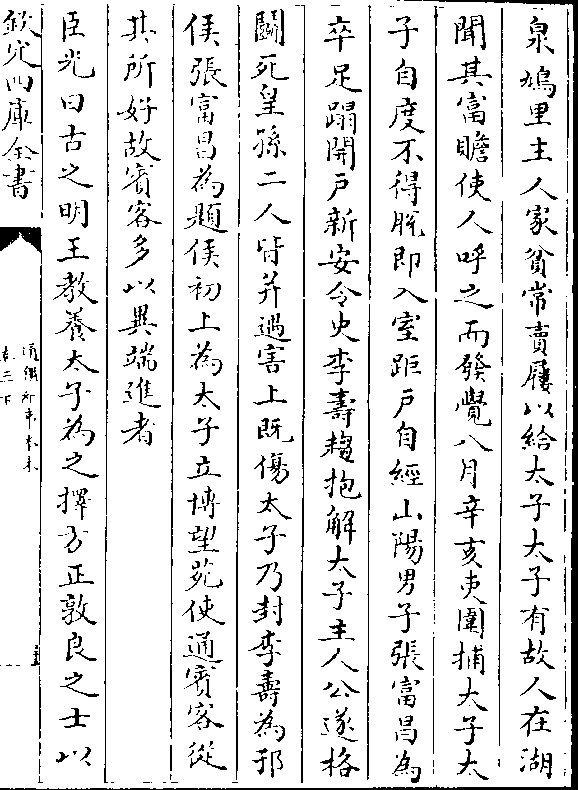 泉鳩里主人家貧常賣屨以給太子太子有故人在湖
聞其富贍使人呼之而發覺八月辛亥吏圍捕太子太
子自度不得脫即入室距戸自經山陽男子張富昌為
卒足蹋開戸新安令史李壽趨抱解太子主人公遂格
鬭死皇孫二人皆并遇害上既傷太子乃封李壽為邘
侯張富昌為題侯初上為太子立博望苑使通賓客從
其所好故賓客多以異端進者
臣光曰古之明王教養太子為之擇方正敦良之士以
欽定四庫全書
通鑑紀事本末
卷三下